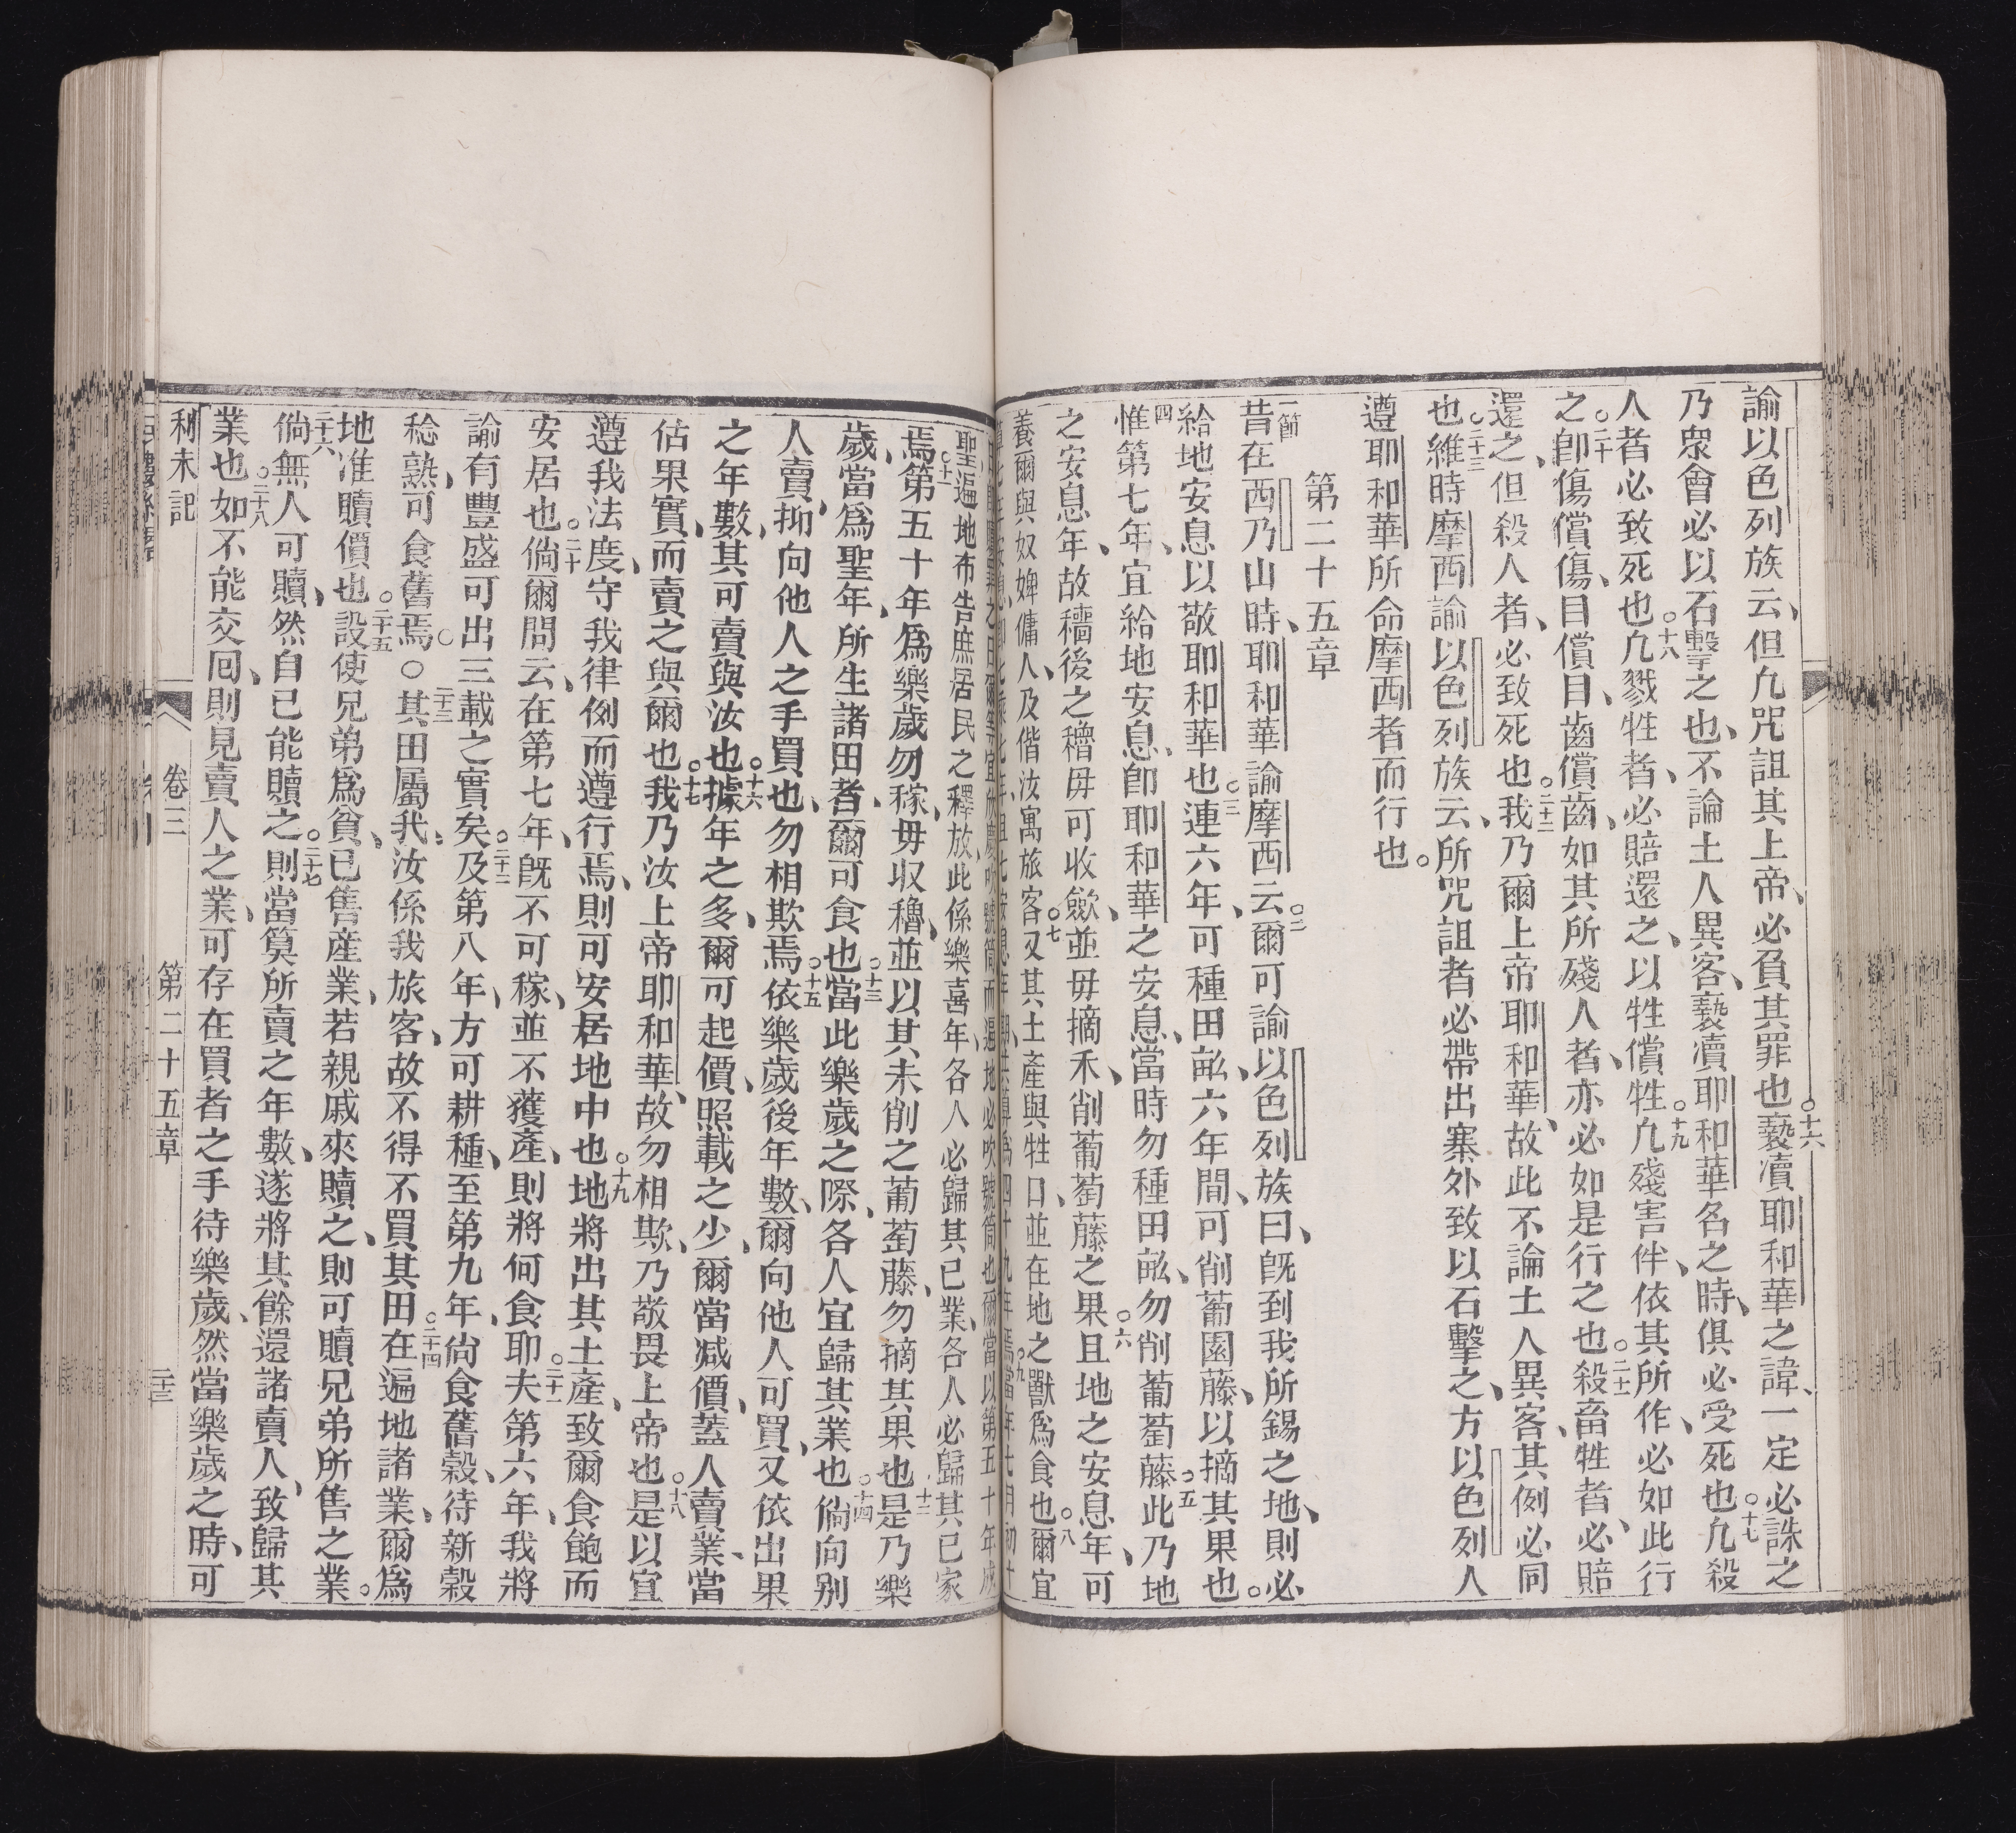 諭以色列族云、但凢咒詛其上帝、必負其罪也○十六褻瀆耶和華之諱、一定必誅之
乃衆會必以石擊之也、不論土人異客、褻瀆耶和華名之時、俱必受死也○十七凢殺
人者必致死也○十八凢戮牲者、必賠還之、以牲償牲○十九凢殘害伴、依其所作、必如此行
之○二十卽傷償傷、目償目、齒償齒、如其所殘人者、亦必如是行之也○二十一殺畜牲者、必賠
還之、但殺人者、必致死也○二十二我乃爾上帝耶和華、故此不論土人異客、其例必同
也○二十三維時摩西諭以色列族云、所咒詛者必帶出寨外致以石擊之、方以色列人
遵耶和華所命摩西者而行也。
第二十五章
一節昔在西乃山時、耶和華諭摩西云○二爾可諭以色列族曰、旣到我所錫之地、則必
給地安息以敬耶和華也○三連六年、可種田畝、六年間、可削葡園藤、以摘其果也。
四惟第七年、宜給地安息、卽耶和華之安息、當時勿種田畝、勿削葡萄藤○五此乃地
之安息年、故穡後之穭毋可收歛、並毋摘禾、削葡萄藤之果○六且地之安息年、可
養爾與奴婢傭人、及偕汝寓旅客○七又其土產與牲口、並在地之獸爲食也○八爾宜
聖○十遍地布告庶居民之釋放、此係樂喜年、各人必歸其已業、各人必歸其已家
焉○十一第五十年爲樂歲勿稼、毋収穭、並以其未削之葡萄藤、勿摘其果也○十二是乃樂
歲、當爲聖年、所生諸田者、爾可食也○十三當此樂歲之際、各人宜歸其業也○十四倘向别
人賣、抑向他人之手買也、勿相欺焉○十五依樂歲後年數、爾向他人可買、又依出果
之年數、其可賣與汝也○十六據年之多、爾可起價、照載之少、爾當减價、蓋人賣業、當
估果實、而賣之與爾也○十七我乃汝上帝耶和華、故勿相欺、乃敬畏上帝也○十八是以宜
遵我法度、守我律例而遵行焉、則可安居地中也○十九地將出其土產、致爾食飽而
安居也○二十倘爾問云、在第七年、旣不可稼、並不獲產、則將何食耶○二十一夫第六年、我將
諭有豐盛可出三載之實矣○二十二及第八年、方可耕種、至第九年、尙食舊穀、待新穀
稔熟、可食舊焉○○二十三其田屬我、汝係我旅客、故不得不買其田○二十四在遍地諸業、爾爲
地准贖價也○二十五設使兄弟爲貧、已售産業、若親戚來贖之、則可贖兄弟所售之業。
二十六倘無人可贖、然自已能贖之○二十七則當算所賣之年數、遂將其餘還諸賣人、致歸其
業也○二十八如不能交囘、則見賣人之業、可存在買者之手待樂歲、然當樂歲之時、可
利未記 卷三 第二十五章 三十三